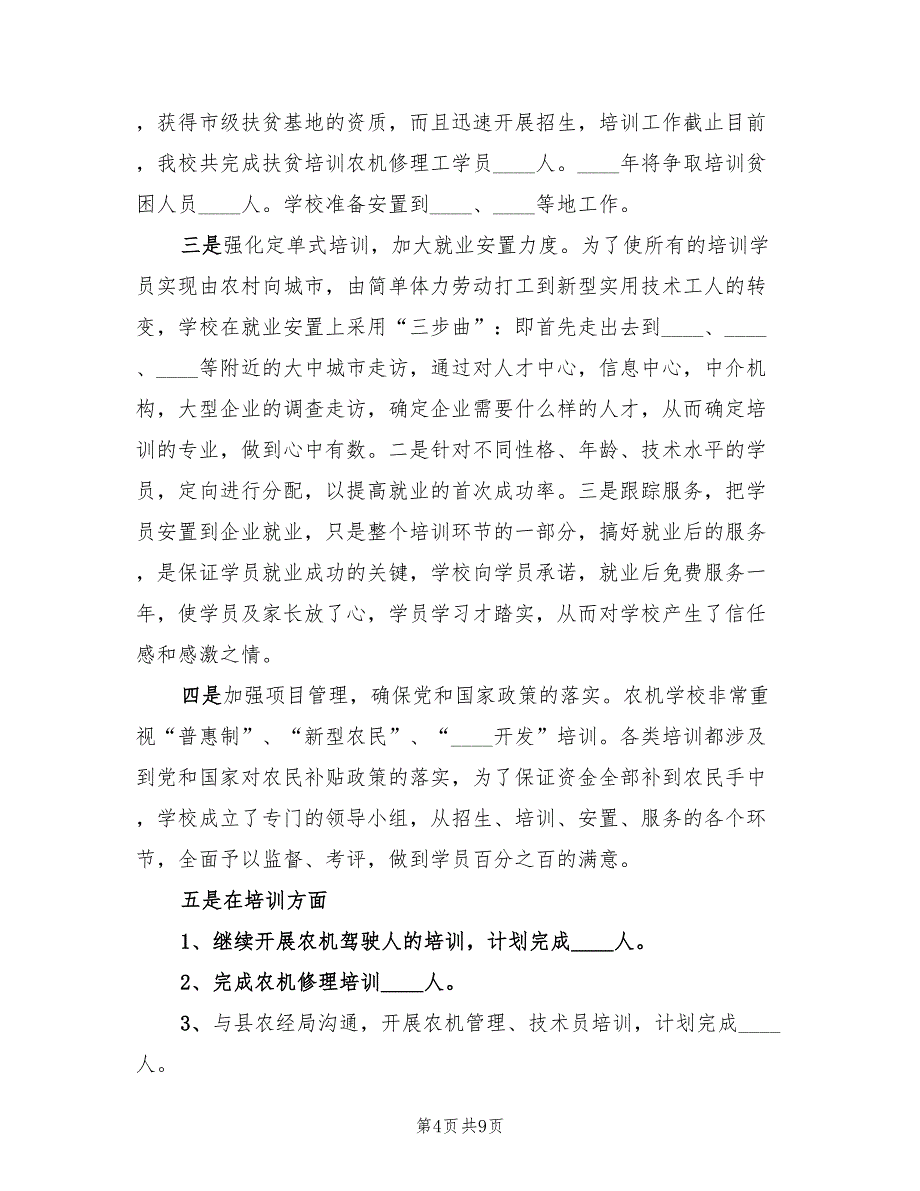 ，获得市级扶贫基地的资质，而且迅速开展招生，培训工作截止目前
，我校共完成扶贫培训农机修理工学员____人。____年将争取培训贫
困人员____人。学校准备安置到____、____等地工作。
三是强化定单式培训，加大就业安置力度。为了使所有的培训学
员实现由农村向城市，由简单体力劳动打工到新型实用技术工人的转
变，学校在就业安置上采用“三步曲”：即首先走出去到____、____
、____等附近的大中城市走访，通过对人才中心，信息中心，中介机
构，大型企业的调查走访，确定企业需要什么样的人才，从而确定培
训的专业，做到心中有数。二是针对不同性格、年龄、技术水平的学
员，定向进行分配，以提高就业的首次成功率。三是跟踪服务，把学
员安置到企业就业，只是整个培训环节的一部分，搞好就业后的服务
，是保证学员就业成功的关键，学校向学员承诺，就业后免费服务一
年，使学员及家长放了心，学员学习才踏实，从而对学校产生了信任
感和感激之情。
四是加强项目管理，确保党和国家政策的落实。农机学校非常重
视“普惠制”、“新型农民”、“____开发”培训。各类培训都涉及
到党和国家对农民补贴政策的落实，为了保证资金全部补到农民手中
，学校成立了专门的领导小组，从招生、培训、安置、服务的各个环
节，全面予以监督、考评，做到学员百分之百的满意。
五是在培训方面
1、继续开展农机驾驶人的培训，计划完成____人。
2、完成农机修理培训____人。
3、与县农经局沟通，开展农机管理、技术员培训，计划完成____
人。
第4页 共9页